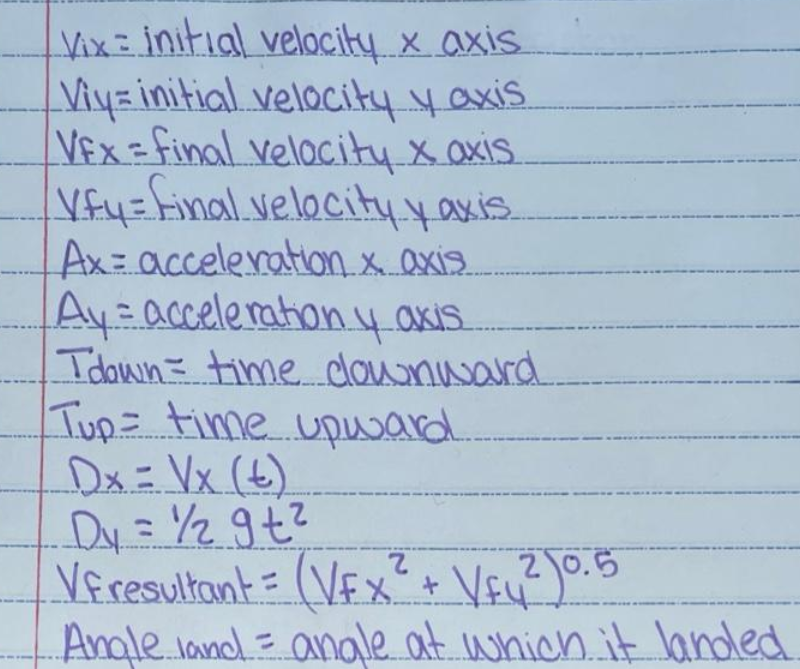 Vix = initial velocity x axis
Viy = initial velocity y axis
Vfx = final velocity x axis
Vfy = final velocity y axis
Ax = acceleration x axis
Ay = acceleration y axis
Tdown = time downward
Tup = time upward
Dx = Vx (t)
Dy = 1/2 gt²
Vf resultant = (Vfx² + Vfy²)^0.5
Angle land = angle at which it landed